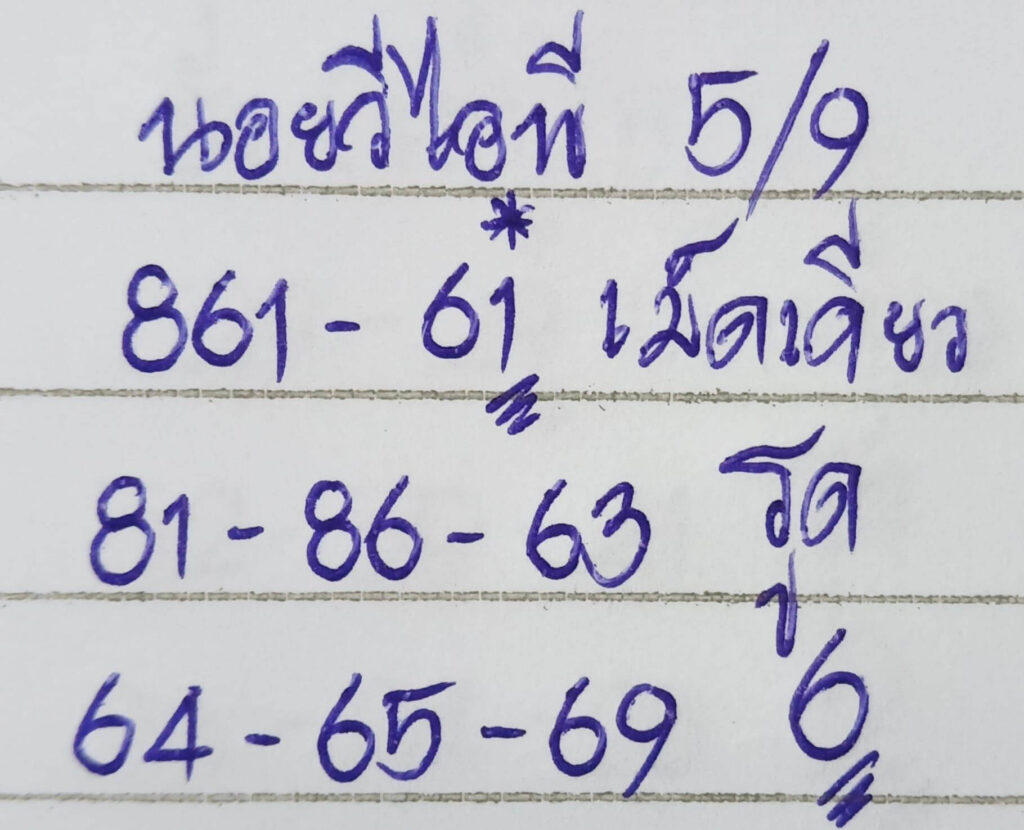 นอยวีไอพี 5/9
861 - 61 * เม็ดเดียว
81 - 86 - 63 รูด
64 - 65 - 69 6